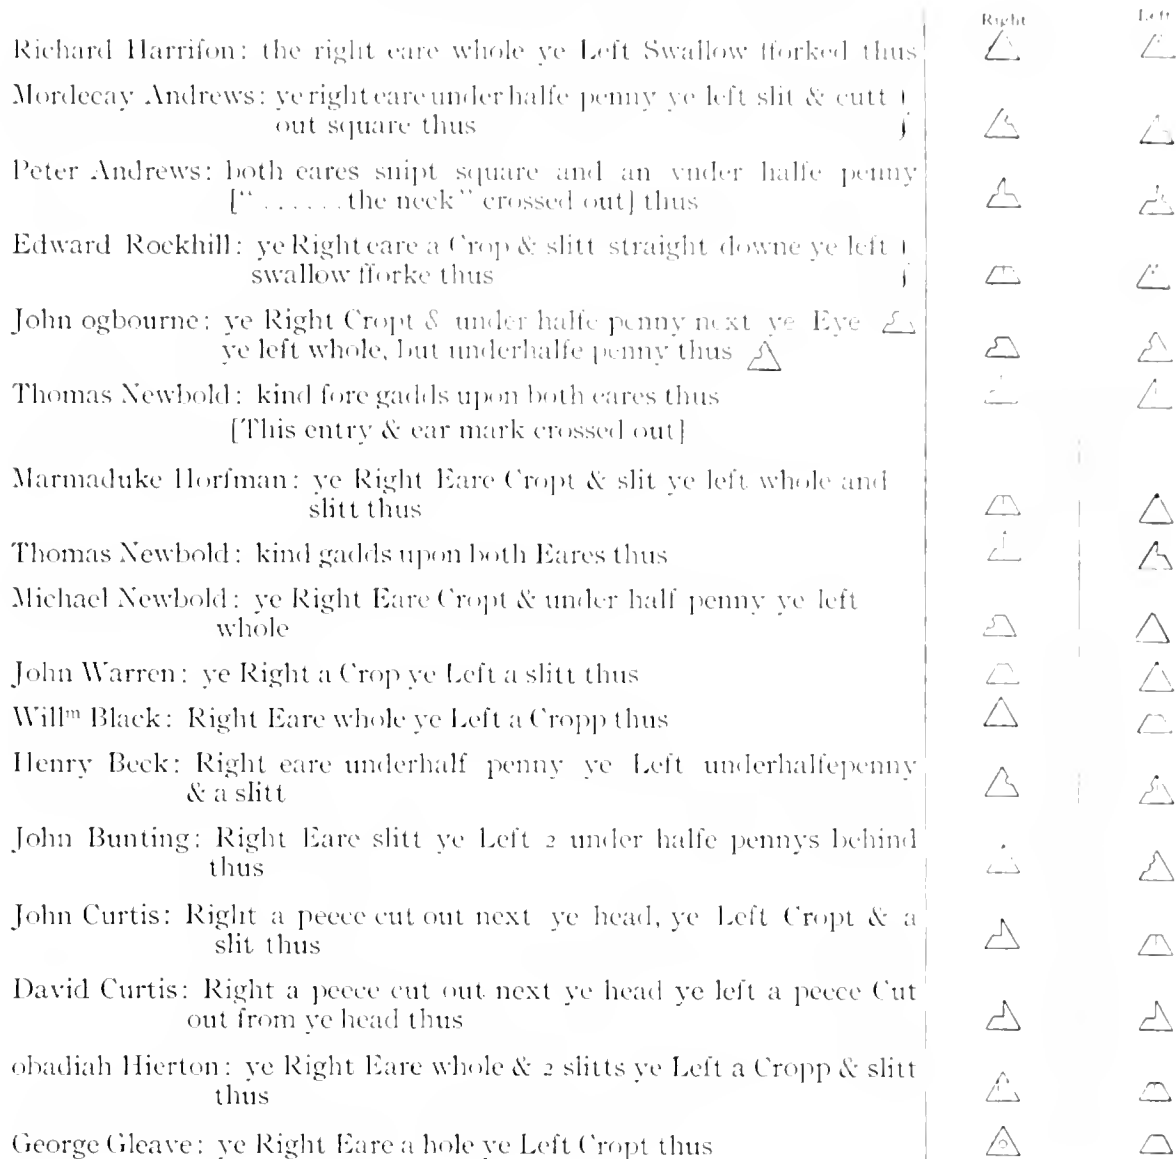 Right Left
Richard Harrifon: the right eare whole ye Left Swallow fforked thus
Mordecay Andrews: ye right eare under halfe penny ye left slit & cutt
out square thus
Peter Andrews: both eares snipt square and an vnder halfe penny
[“ ...... the neck” crossed out] thus
Edward Rockhill: ye Right eare a Crop & slitt straight downe ye left
swallow fforke thus
John ogbourne: ye Right Cropt & under halfe penny next ye Eye
ye left whole, but underhalfe penny thus
Thomas Newbold: kind fore gadds upon both eares thus
[This entry & ear mark crossed out]
Marmaduke Horfman: ye Right Eare Cropt & slit ye left whole and
slitt thus
Thomas Newbold: kind gadds upon both Eares thus
Michael Newbold: ye Right Eare Cropt & under half penny ye left
whole
John Warren: ye Right a Crop ye Left a slitt thus
Willᵐ Black: Right Eare whole ye Left a Cropp thus
Henry Beck: Right eare underhalf penny ye Left underhalfepenny
& a slitt
John Bunting: Right Eare slitt ye Left 2 under halfe pennys behind
thus
John Curtis: Right a peece cut out next ye head, ye Left Cropt & a
slit thus
David Curtis: Right a peece cut out next ye head ye left a peece Cut
out from ye head thus
obadiah Hierton: ye Right Eare whole & 2 slitts ye Left a Cropp & slitt
thus
George Gleave: ye Right Eare a hole ye Left Cropt thus